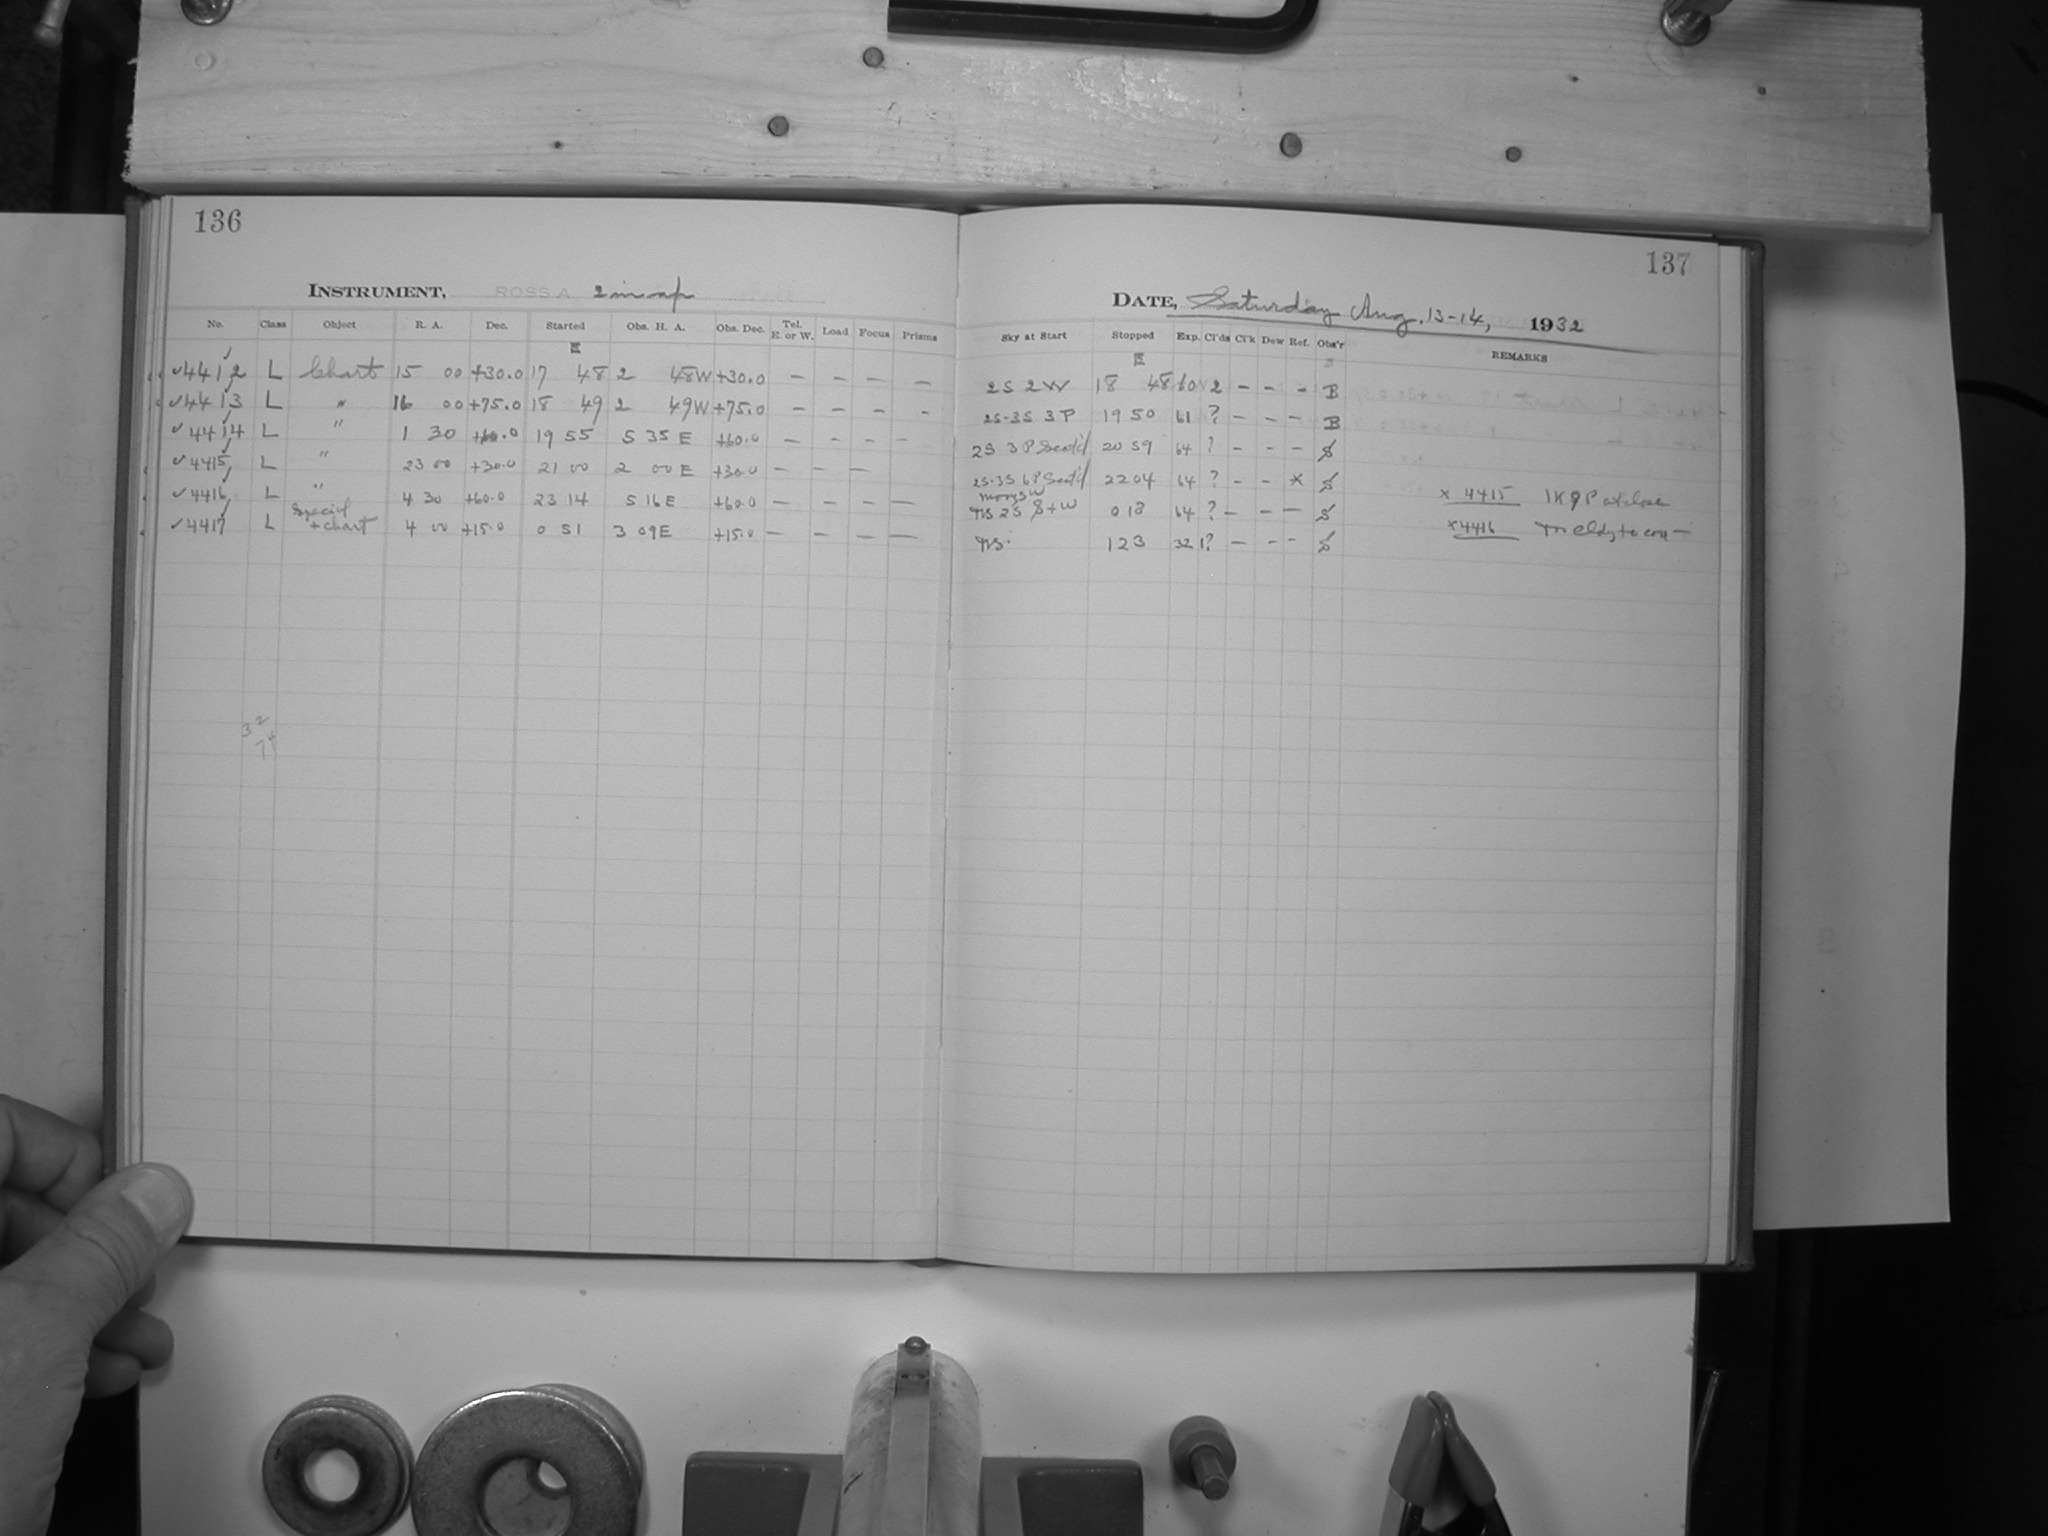 136
137
INSTRUMENT, ROSS A 2 in ap
DATE, Saturday Aug. 13-14, 1932
No. Class Object R. A. Dec. Started Obs. H. A. Obs. Dec. Tel. E. or W. Load Focus Prisms
Sky at Start Stopped Exp. Cl'ds Cl'k Dew Ref. Obs'r REMARKS
E E
✓4412 L Chart 15 00 +30.0 17 48 2 48W +30.0 — — — — 2S 2W 18 48 60 2 – – – B
✓4413 L " 16 00 +75.0 18 49 2 49W +75.0 – – – – 2S-3S 3P 19 50 61 ? – – – B
✓4414 L " 1 30 +60.0 19 55 5 35 E +60.0 — — — — 2S 3P 20 59 64 ? – – – S
✓4415 L " 23 00 +30.0 21 00 2 00 E +30.0 — — — 2S-3S 22 04 64 ? – – × S
✓4416 L " 4 30 +60.0 23 14 5 16 E +60.0 — — — — 2S 0 18 64 ? – – — S
× 4415
✓4417 L Special + chart 4 00 +15.0 0 51 3 09 E +15.0 — — — — 1 23 32 1? — – – S
×4416
32
74